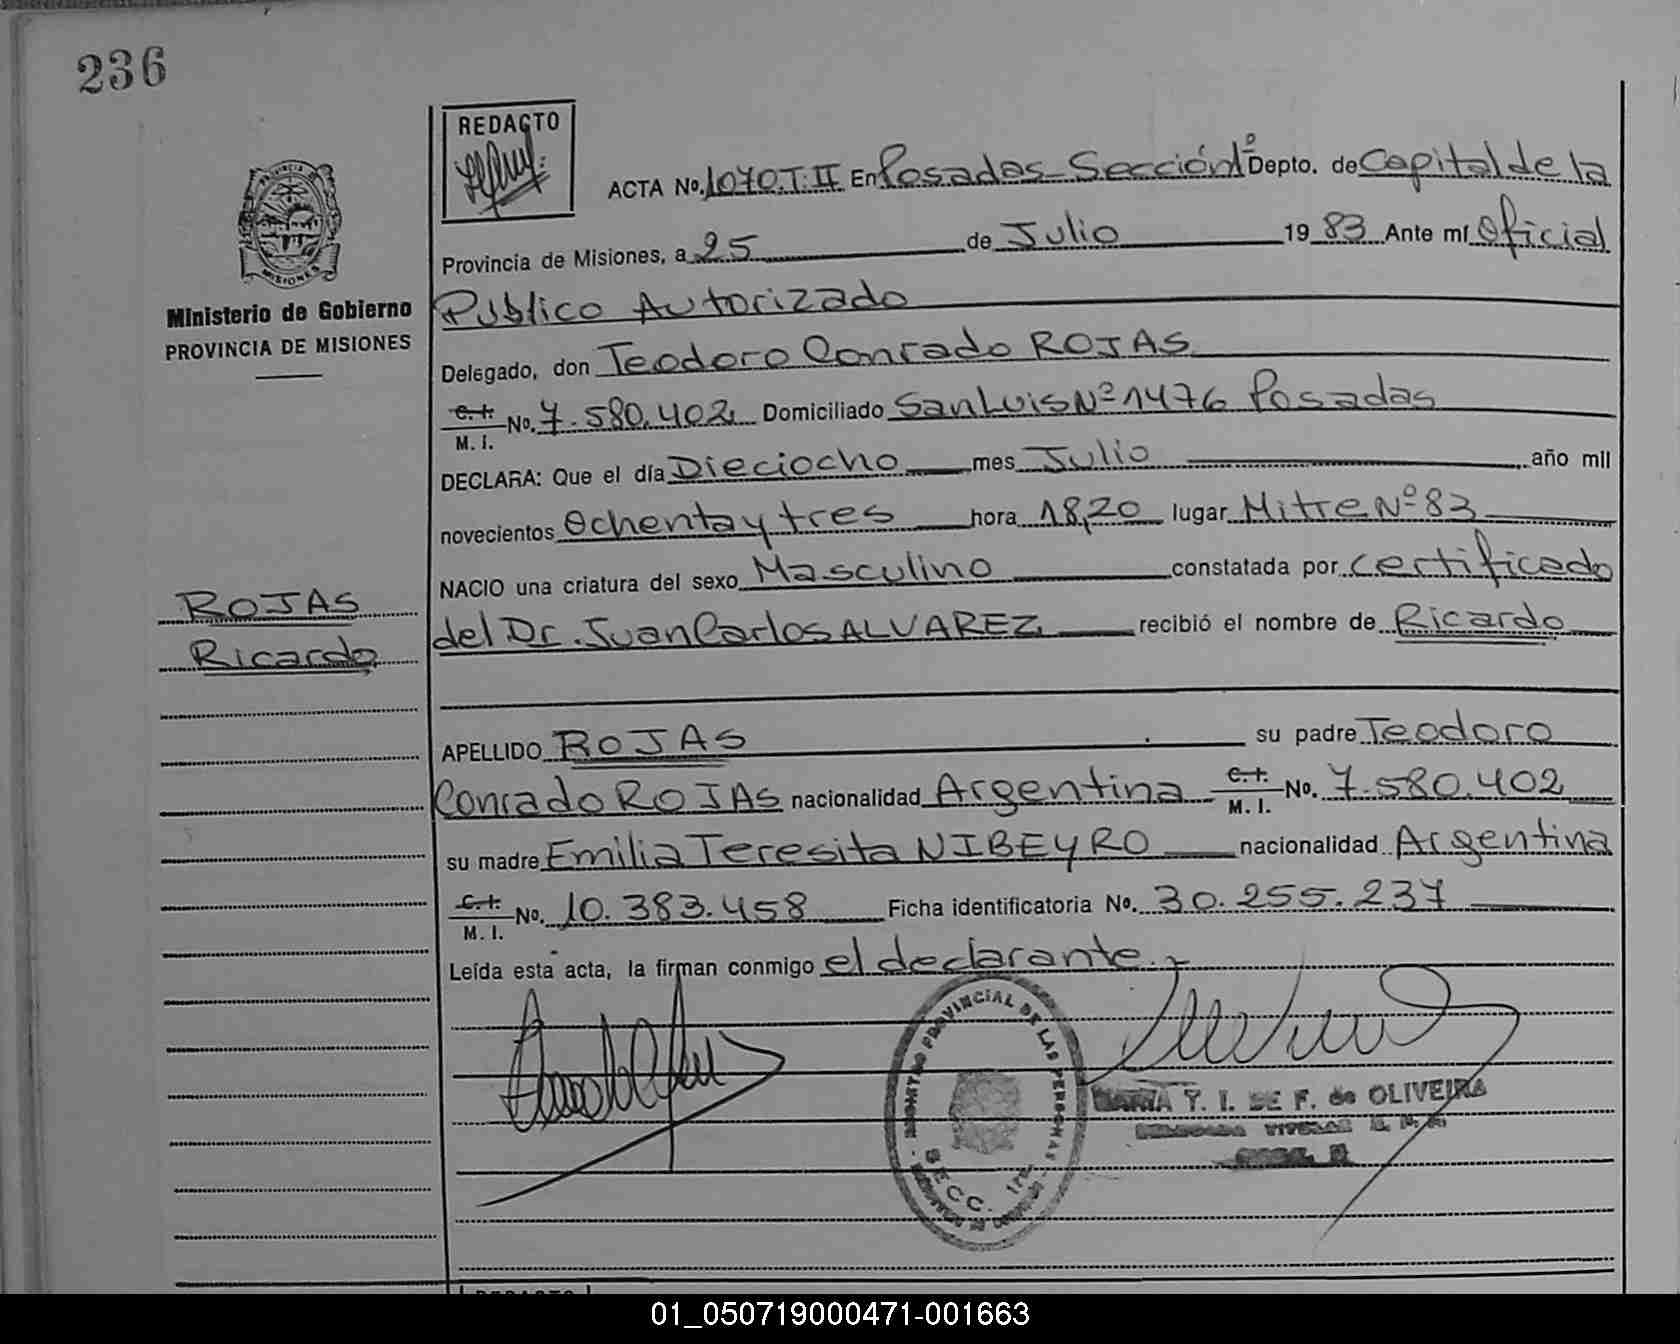 236
REDACTO
ACTA No. 1070.T.II En Posadas - Sección 1º Depto. de Capital de la
Provincia de Misiones, a 25 de Julio 1983 Ante mí Oficial
Ministerio de Gobierno
PROVINCIA DE MISIONES
Publico Autorizado
Delegado, don Teodoro Conrado ROJAS
C.I. M.I. No. 7.580.402 Domiciliado San Luis Nº 1476 Posadas
DECLARA: Que el día Dieciocho mes Julio año mil
novecientos Ochenta y tres hora 18,20 lugar Mitre Nº 83
NACIO una criatura del sexo Masculino constatada por certificado
ROJAS
Ricardo
del Dr. Juan Carlos ALVAREZ recibió el nombre de Ricardo
APELLIDO ROJAS su padre Teodoro
Conrado ROJAS nacionalidad Argentina C.I. M.I. No. 7.580.402
su madre Emilia Teresita NIBEYRO nacionalidad Argentina
C.I. M.I. No. 10.383.458 Ficha identificatoria No. 30.255.237
Leída esta acta, la firman conmigo el declarante.-
PROVINCIAL DE LAS PERSONAS
SECC. 1ra
MARIA Y. I. DE F. de OLIVEIRA
01_050719000471-001663